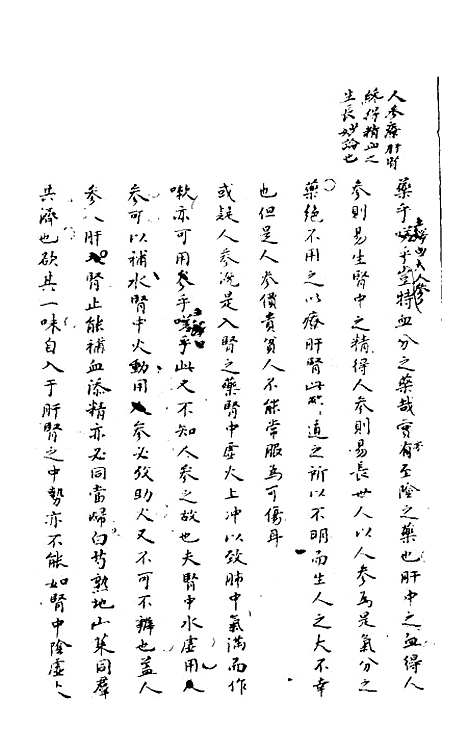 人參療肝腎
絲得精血之
生長妙論也
藥乎嗟乎豈特血分之藥哉實至陰之藥也肝中之血得人
參則易生腎中之精得人參則易長世人以人參為是氣分之
藥絕不用之以療肝腎此道之所以不明而生人之大不幸
也但是人參價貴貧人不能常服為可傷耳
或疑人參既是入腎之藥腎中虛火上冲以致肺中氣滿而作
嗽亦可用參乎嗟乎此又不知人參之故也夫腎中水虛用
參可以補水腎中火動用參必致助火又不可不辨也蓋人
參入肝腎止能補血添精亦必同當歸白芍熟地山萸同群
共濟也欲其一味自入于肝腎之中勢亦不能如腎中陰虛